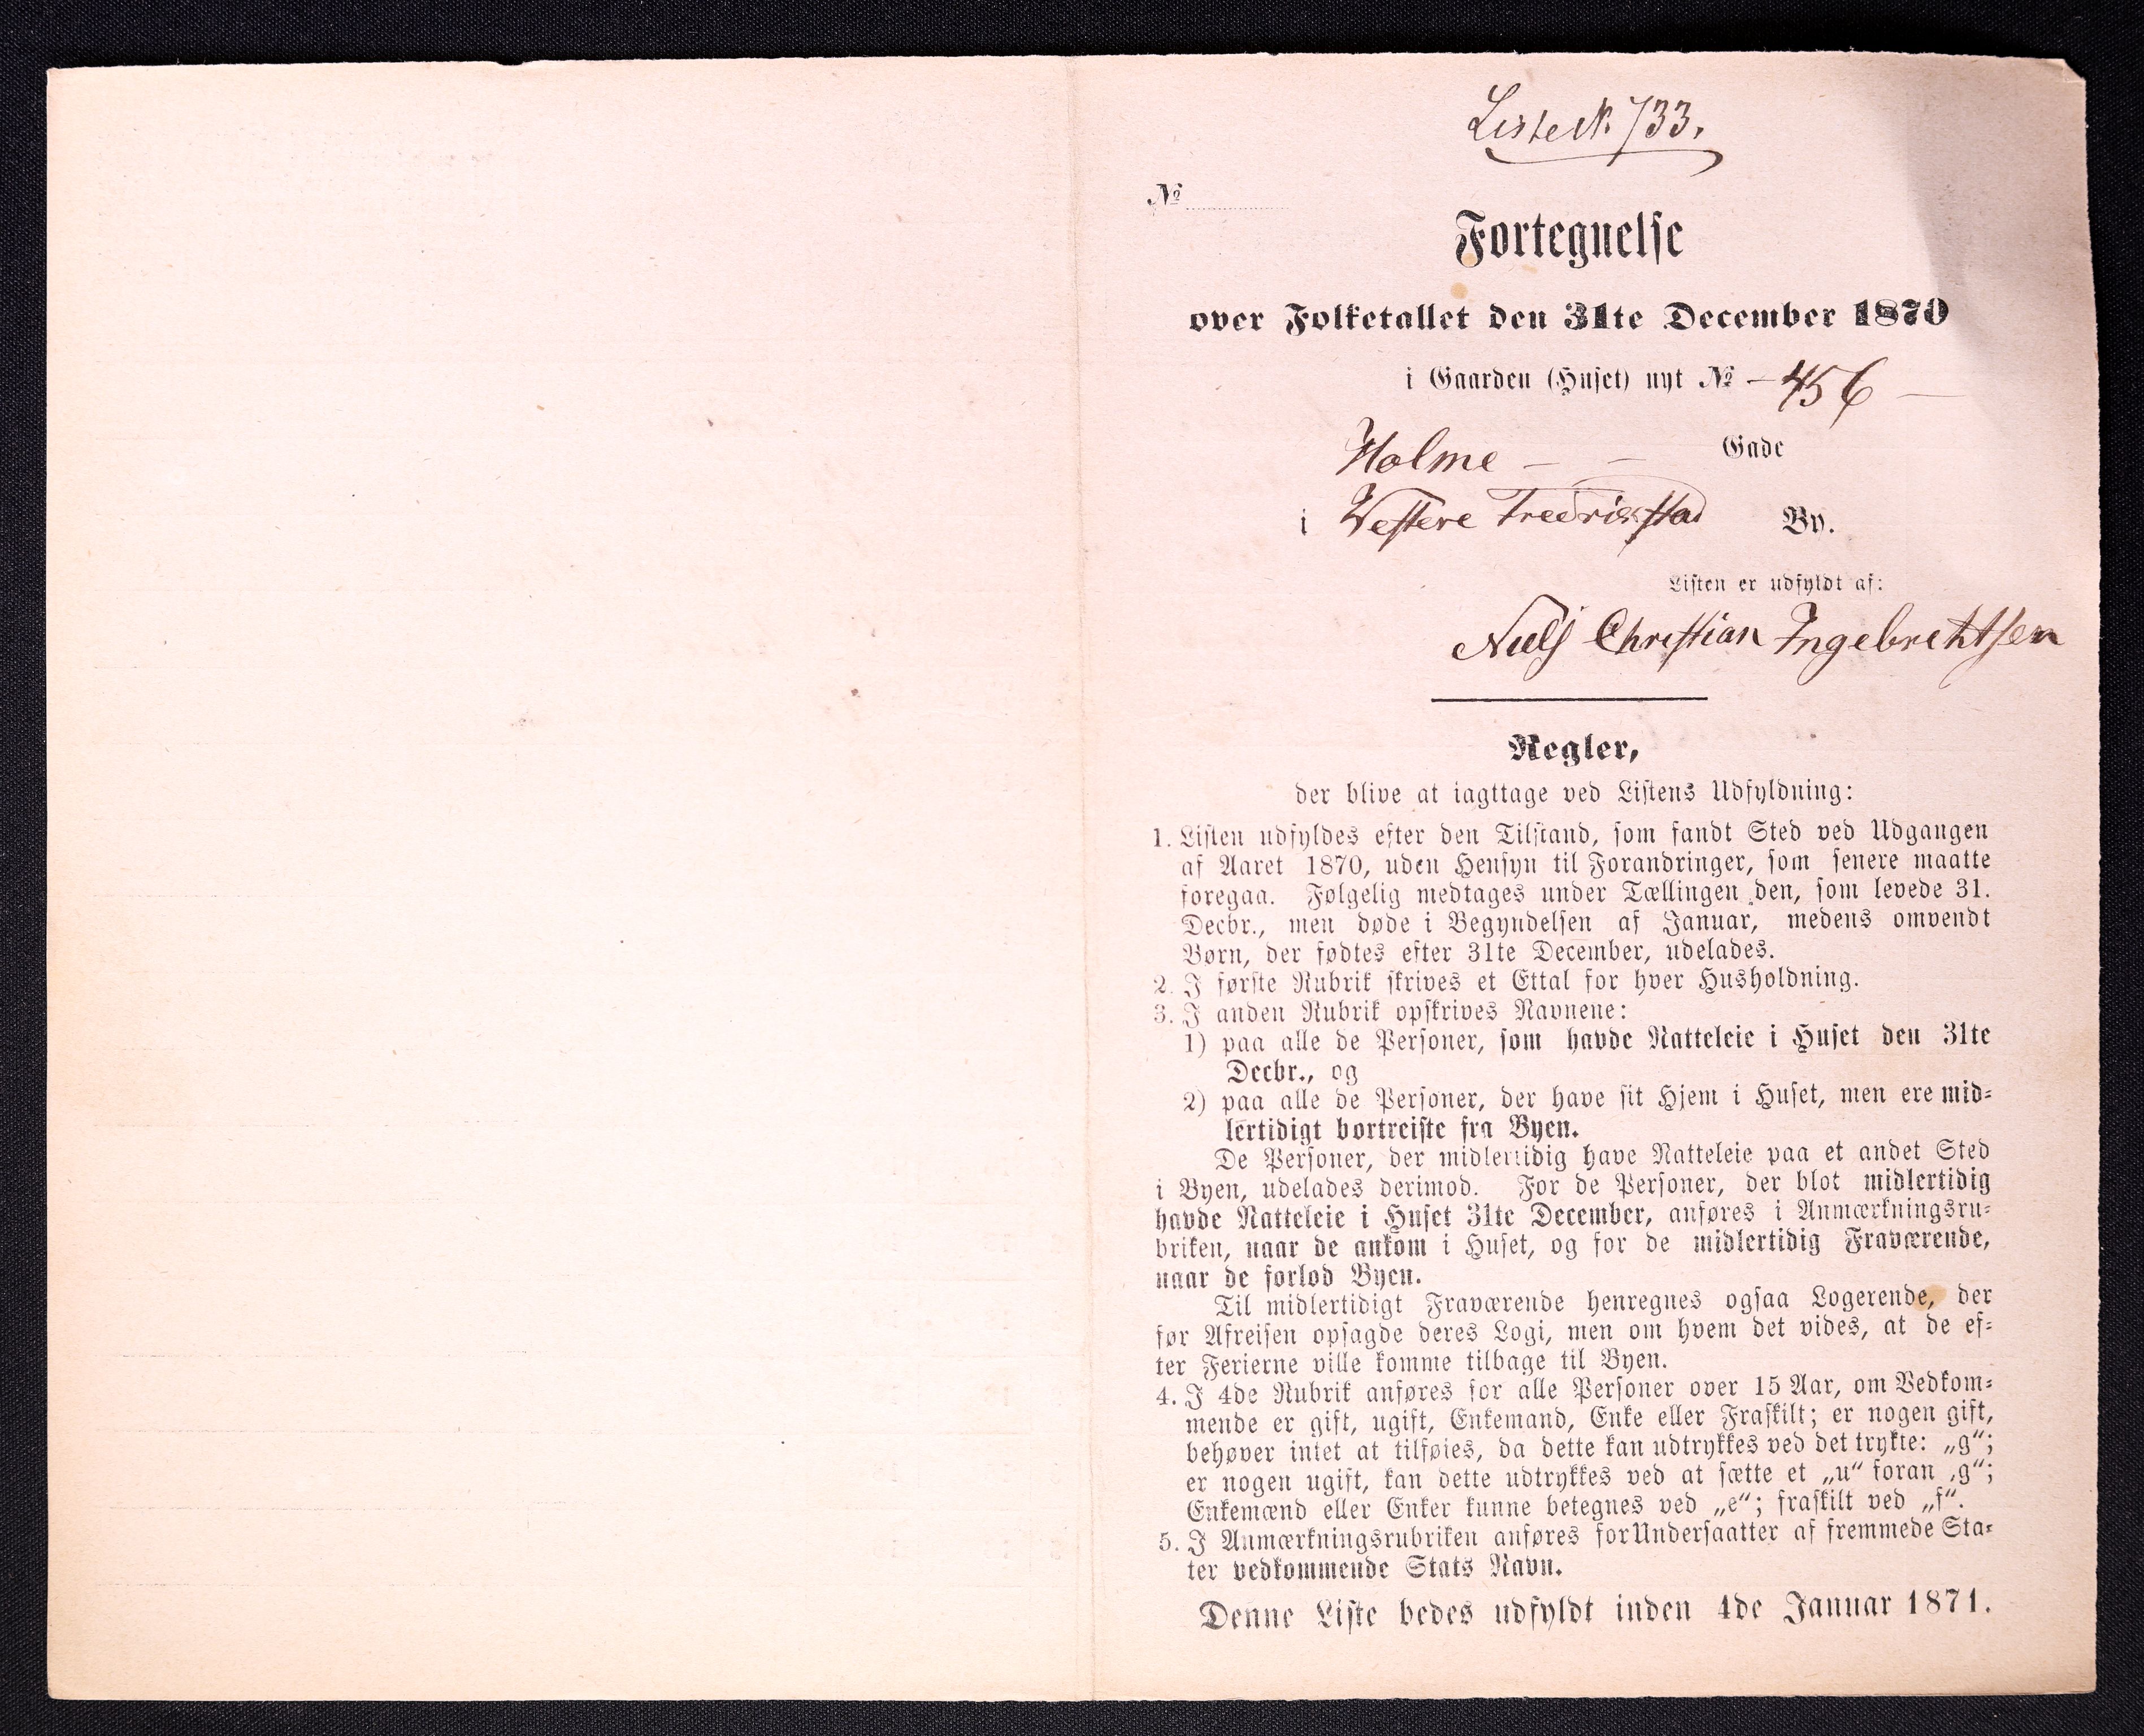 Liste N. 733.
№
Fortegnelse
over Folketallet den 31te December 1870
i Gaarden (Huset) nyt № - 456 -
Holme - - Gade
i Vestere Fredrikstad By.
Listen er udfyldt af:
Niels Christian Ingebrethsen
Regler,
der blive at iagttage ved Listens Udfyldning:
1. Listen udfyldes efter den Tilstand, som fandt Sted ved Udgangen
af Aaret 1870, uden Hensyn til Forandringer, som senere maatte
foregaa. Følgelig medtages under Tællingen den, som levede 31.
Decbr., men døde i Begyndelsen af Januar, medens omvendt
Børn, der fødtes efter 31te December, udelades.
2. I første Rubrik skrives et Ettal for hver Husholdning.
3. I anden Rubrik opskrives Navnene:
1) paa alle de Personer, som havde Natteleie i Huset den 31te
Decbr., og
2) paa alle de Personer, der have sit Hjem i Huset, men ere mid-
lertidigt bortreiste fra Byen.
De Personer, der midlertidig have Natteleie paa et andet Sted
i Byen, udelades derimod. For de Personer, der blot midlertidig
havde Natteleie i Huset 31te December, anføres i Anmærkningsru-
briken, naar de ankom i Huset, og for de midlertidig Fraværende,
naar de forlod Byen.
Til midlertidigt Fraværende henregnes ogsaa Logerende, der
før Afreisen opsagde deres Logi, men om hvem det vides, at de ef-
ter Ferierne ville komme tilbage til Byen.
4. I 4de Rubrik anføres for alle Personer over 15 Aar, om Vedkom-
mende er gift, ugift, Enkemand, Enke eller Fraskilt; er nogen gift,
behøver intet at tilføies, da dette kan udtrykkes ved det trykte: „g“;
er nogen ugift, kan dette udtrykkes ved at sætte et „u“ foran „g“;
Enkemænd eller Enker kunne betegnes ved „e“; fraskilt ved „f“.
5. I Anmærkningsrubriken anføres for Undersaatter af fremmede Sta-
ter vedkommende Stats Navn.
Denne Liste bedes udfyldt inden 4de Januar 1871.